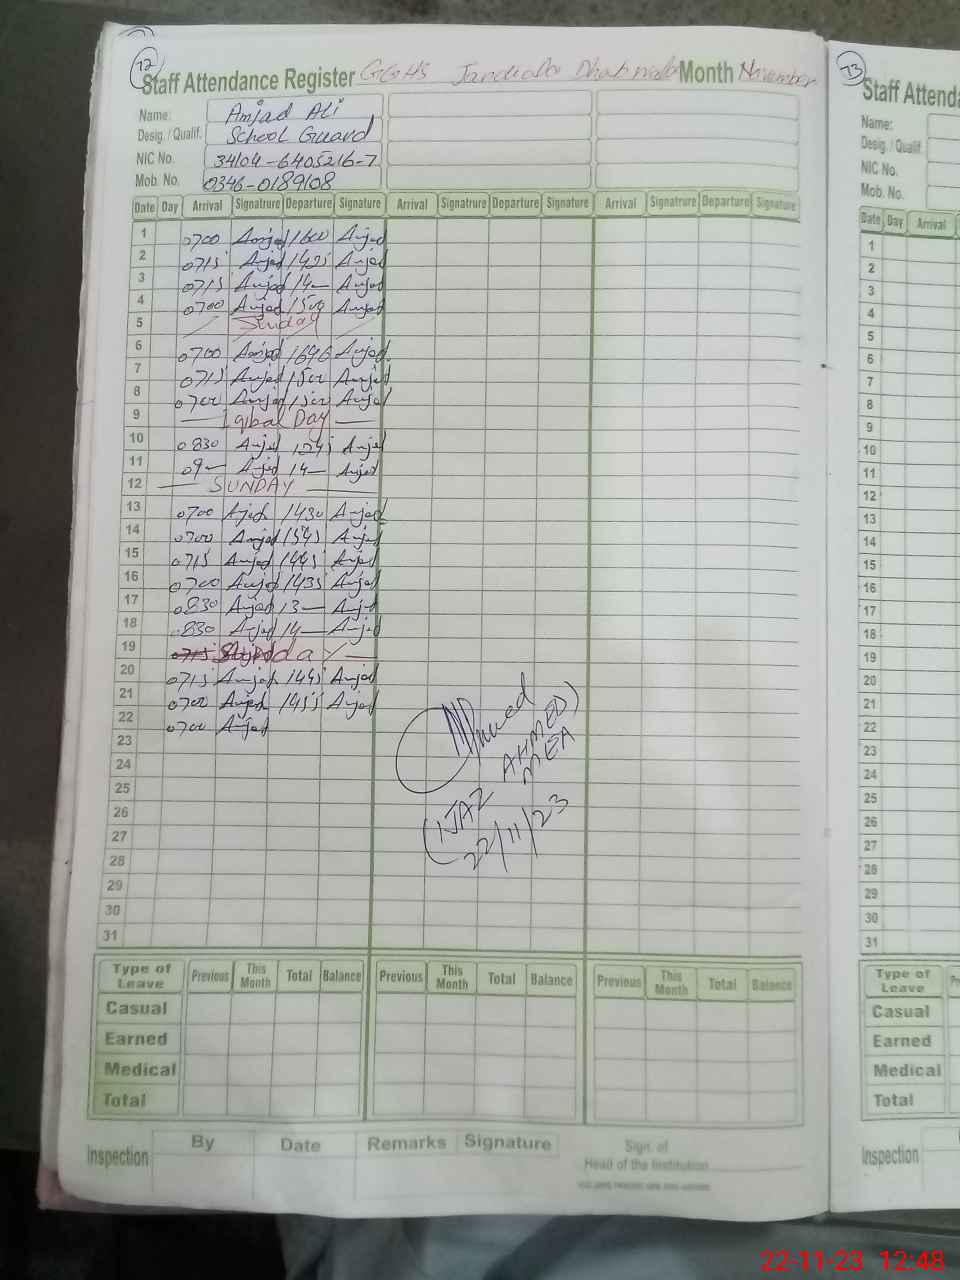 72
Staff Attendance Register GGHS Jandiala Dhabwala Month November
Name: Amjad Ali
Desig. / Qualif. School Guard
NIC No. 34104-6405216-7
Mob. No. 0346-0189108
Date Day Arrival Signatrure Departure Signature Arrival Signatrure Departure Signature Arrival Signatrure Departure Signature
1 0700 Amjad 1600 Amjad
2 0715 Amjad 1425 Amjad
3 0715 Amjad 14— Amjad
4 0700 Amjad 1500 Amjad
5 Sunday
6 0700 Amjad 1646 Amjad
7 0715 Amjad 1500 Amjad
8 0700 Amjad 1500 Amjad
9 — Iqbal Day —
10 0830 Amjad 1245 Amjad
11 09— Amjad 14— Amjad
12 — SUNDAY —
13 0700 Amjad 1430 Amjad
14 0700 Amjad 1545 Amjad
15 0715 Amjad 1445 Amjad
16 0700 Amjad 1435 Amjad
17 0830 Amjad 13— Amjad
18 0830 Amjad 14— Amjad
19 Sunday
20 0715 Amjad 1445 Amjad
21 0700 Amjad 1455 Amjad
22 0700 Amjad
23
24
25
26
27
28
29
30
31
(IJAZ AHMED)
MEA
22/11/23
Type of Leave Previous This Month Total Balance Previous This Month Total Balance Previous This Month Total Balance
Casual
Earned
Medical
Total
Inspection By Date Remarks Signature
Sign. of
Head of the Institution
73
Staff Attenda
Name:
Desig. / Qualif.
NIC No.
Mob. No.
Date Day Arrival
1
2
3
4
5
6
7
8
9
10
11
12
13
14
15
16
17
18
19
20
21
22
23
24
25
26
27
28
29
30
31
Type of Leave Pr
Casual
Earned
Medical
Total
Inspection
22-11-23 12:48